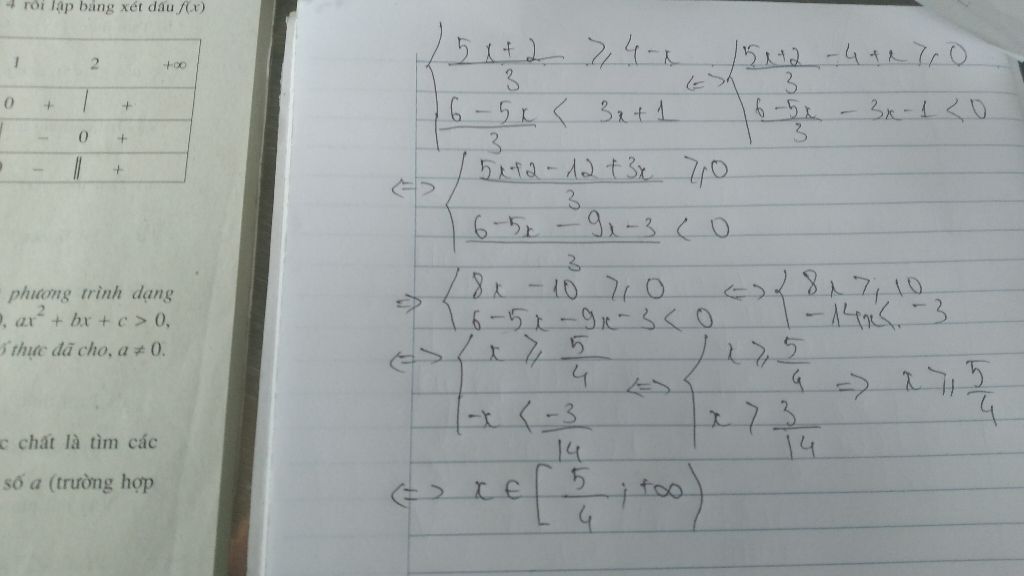 4 rồi lập bảng xét dấu f(x)
1 2 +∞
0 + | +
- 0 +
- || +
phương trình dạng
, ax² + bx + c > 0,
ố thực đã cho, a ≠ 0.
c chất là tìm các
số a (trường hợp
{ (5x+2)/3 ≥ 4-x <=> { (5x+2)/3 - 4 + x ≥ 0
(6-5x)/3 < 3x+1 (6-5x)/3 - 3x - 1 < 0
<=> { (5x+2-12+3x)/3 ≥ 0
(6-5x-9x-3)/3 < 0
=> { 8x - 10 ≥ 0 <=> { 8x ≥ 10
6-5x-9x-3 < 0 -14x < -3
<=> { x ≥ 5/4 <=> { x ≥ 5/4 => x ≥ 5/4
-x < -3/14 x > 3/14
<=> x ∈ [5/4 ; +∞)